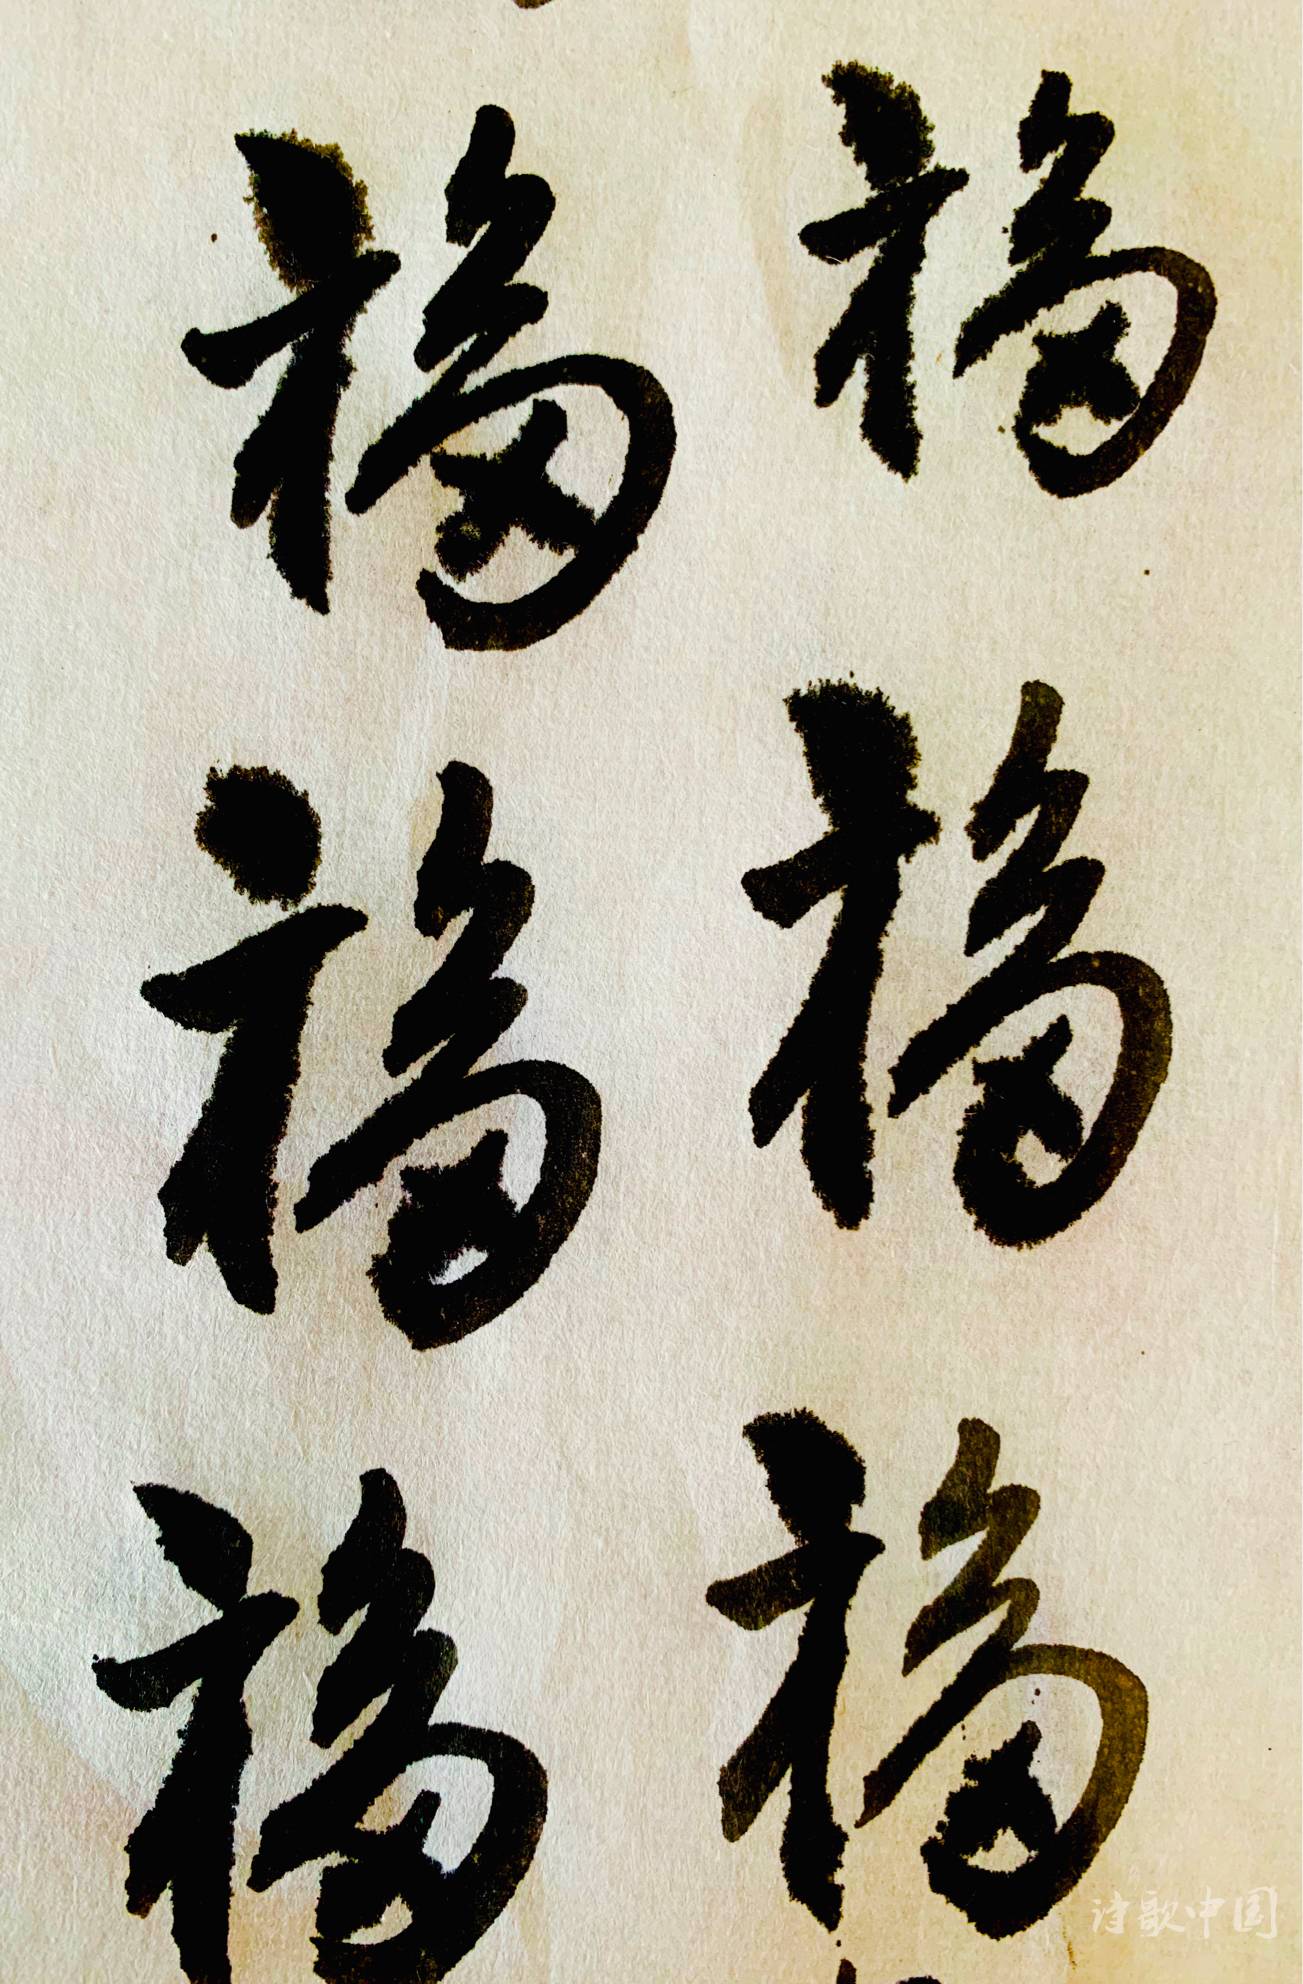 福福福
福福福
诗歌中国